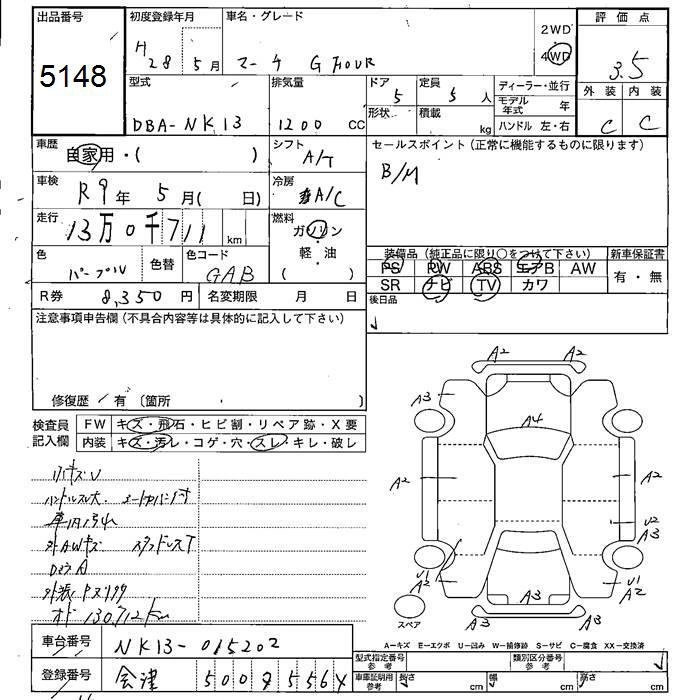 出品番号
5148
初度登録年月
H 28 5 月
車名・グレード
マーチ G FOUR
2WD
4WD
評価点
3.5
外装 内装
C C
型式
DBA-NK13
排気量
1200 CC
ドア
5
形状
定員
5 人
積載
kg
ディーラー・並行
モデル年式 年
ハンドル 左・右
車歴
自家用・( )
シフト
A/T
セールスポイント(正常に機能するものに限ります)
B/M
車検
R9年 5月( 日)
冷房
A/C
走行
13万0千711 km
燃料
ガソリン
軽・油
( )
色
パープル
色替
色コード
GAB
装備品(純正品に限り○をつけて下さい)
PS PW ABS エアB AW
SR ナビ TV カワ
新車保証書
有・無
R券 8,350 円
名変期限 月 日
後日品
注意事項申告欄(不具合内容等は具体的に記入して下さい)
修復歴/有 〔箇所 〕
検査員
記入欄
FW キズ・飛石・ヒビ割・リペア跡・X要
内装 キズ・汚レ・コゲ・穴・スレ・キレ・破レ
ハンドルスレ大.
外AWキズ スタッドレスT
オド 130,712km
A2 A2
A3 A3
A4
A2 A2
U2
A3
U1
A2
U1
A2
A3
A3 A3
スペア
A-キズ E-エクボ U-凹み W-補修跡 S-サビ C-腐食 XX-交換済
車台番号 NK13-015202
登録番号 会津 500
型式指定番号
参考
類別区分番号
参考
車庫証明用
参考
長さ cm 幅 cm 高さ cm